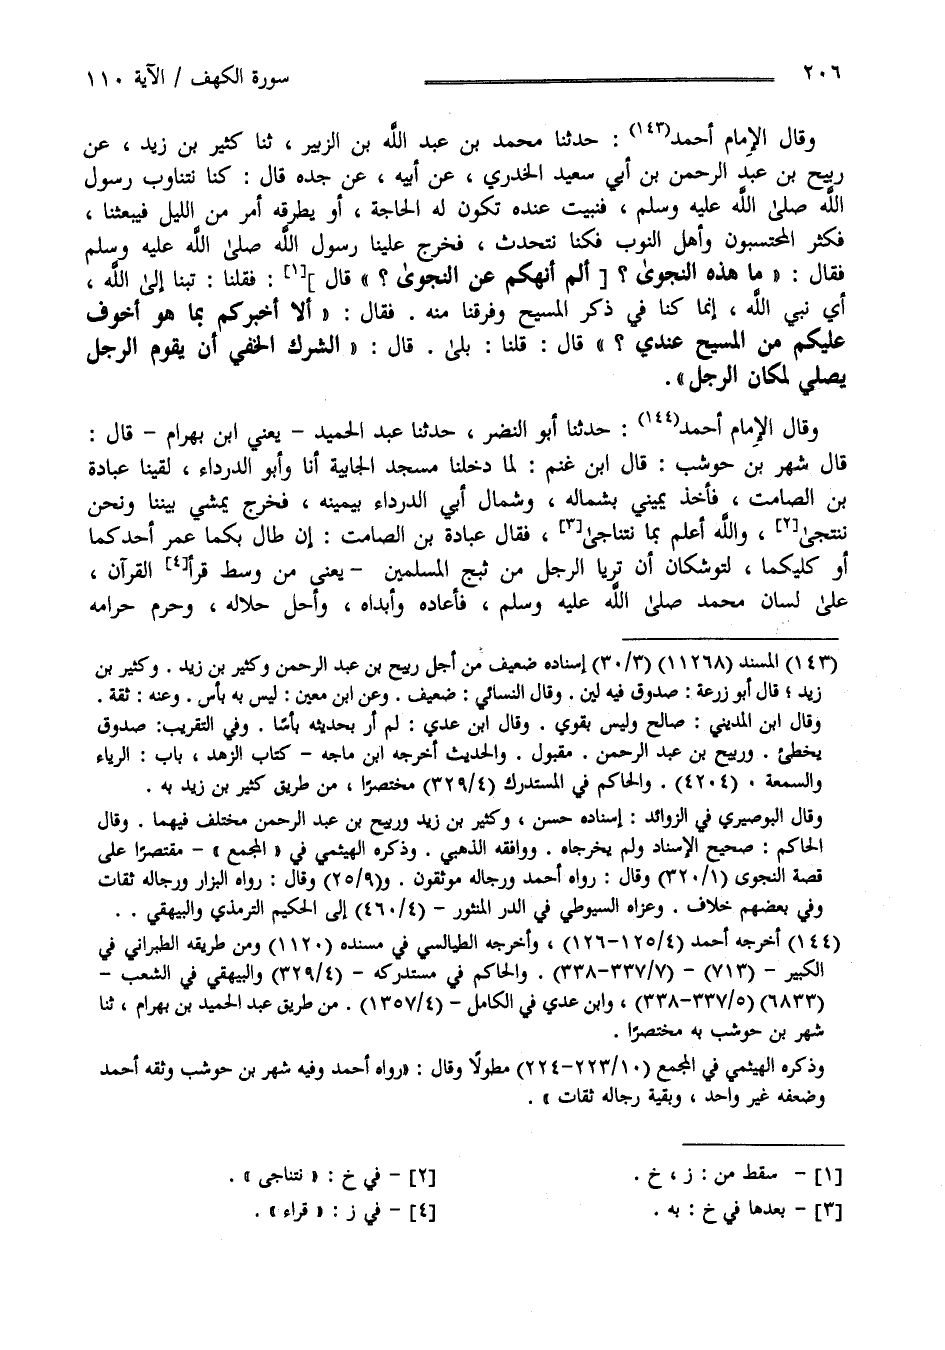 ٢٠٦ سورة الكهف / الآية ١١٠
وقال الإمام أحمد(١٤٣) : حدثنا محمد بن عبد اللَّه بن الزبير ، ثنا كثير بن زيد ، عن
ربيح بن عبد الرحمن بن أبي سعيد الخدري ، عن أبيه ، عن جده قال : كنا نتناوب رسول
اللَّه صلىٰ اللَّه عليه وسلم ، فنبيت عنده تكون له الحاجة ، أو يطرقه أمر من الليل فيبعثنا ،
فكثر المحتسبون وأهل النوب فكنا نتحدث ، فخرج علينا رسول اللَّه صلىٰ اللَّه عليه وسلم
فقال : « ما هذه النجوىٰ ؟ [ ألم أنهكم عن النجوىٰ ؟ » قال ][١] : فقلنا : تبنا إلىٰ اللَّه ،
أي نبي اللَّه ، إنما كنا في ذكر المسيح وفرقنا منه . فقال : « ألا أخبركم بما هو أخوف
عليكم من المسيح عندي ؟ » قال : قلنا : بلىٰ . قال : « الشرك الخفي أن يقوم الرجل
يصلي لمكان الرجل» .
وقال الإمام أحمد(١٤٤) : حدثنا أبو النضر ، حدثنا عبد الحميد – يعني ابن بهرام – قال :
قال شهر بن حوشب : قال ابن غنم : لما دخلنا مسجد الجابية أنا وأبو الدرداء ، لقينا عبادة
بن الصامت ، فأخذ يميني بشماله ، وشمال أبي الدرداء بيمينه ، فخرج يمشي بيننا ونحن
ننتجىٰ[٢] ، واللَّه أعلم بما نتناجىٰ[٣] ، فقال عبادة بن الصامت : إن طال بكما عمر أحدكما
أو كليكما ، لتوشكان أن تريا الرجل من ثبج المسلمين –يعني من وسط قرأ[٤] القرآن ،
علىٰ لسان محمد صلىٰ اللَّه عليه وسلم ، فأعاده وأبداه ، وأحل حلاله ، وحرم حرامه
(١٤٣) المسند (١١٢٦٨) (٣٠/٣) إسناده ضعيف من أجل ربيح بن عبد الرحمن وكثير بن زيد . وكثير بن
زيد ؛ قال أبو زرعة : صدوق فيه لين . وقال النسائي : ضعيف . وعن ابن معين : ليس به بأس . وعنه : ثقة .
وقال ابن المديني : صالح وليس بقوي . وقال ابن عدي : لم أر بحديثه بأسًا . وفي التقريب: صدوق
يخطئ . وربيح بن عبد الرحمن . مقبول . والحديث أخرجه ابن ماجه – كتاب الزهد ، باب : الرياء
والسمعة . (٤٢٠٤) . والحاكم في المستدرك (٣٢٩/٤) مختصرًا ، من طريق كثير بن زيد به .
وقال البوصيري في الزوائد : إسناده حسن ، وكثير بن زيد وربيح بن عبد الرحمن مختلف فيهما . وقال
الحاكم : صحيح الإسناد ولم يخرجاه . ووافقه الذهبي . وذكره الهيثمي في « المجمع » – مقتصرًا على
قصة النجوى (٣٢٠/١) وقال : رواه أحمد ورجاله موثقون . و(٢٥/٩) وقال : رواه البزار ورجاله ثقات
وفي بعضهم خلاف . وعزاه السيوطي في الدر المنثور – (٤٦٠/٤) إلى الحكيم الترمذي والبيهقي . .
(١٤٤) أخرجه أحمد (١٢٥/٤–١٢٦) ، وأخرجه الطيالسي في مسنده (١١٢٠) ومن طريقه الطبراني في
الكبير – (٧١٣) – (٣٣٧/٧–٣٣٨) . والحاكم في مستدركه – (٣٢٩/٤) والبيهقي في الشعب –
(٦٨٣٣) (٣٣٧/٥–٣٣٨) ، وابن عدي في الكامل – (١٣٥٧/٤) . من طريق عبد الحميد بن بهرام ، ثنا
شهر بن حوشب به مختصرًا .
وذكره الهيثمي في المجمع (٢٢٣/١٠–٢٢٤) مطولًا وقال : «رواه أحمد وفيه شهر بن حوشب وثقه أحمد
وضعفه غير واحد ، وبقية رجاله ثقات » .
[١] – سقط من : ز ، خ . [٢] – في خ : « نتناجى » .
[٣] – بعدها في خ : به . [٤] – في ز : « قراء » .